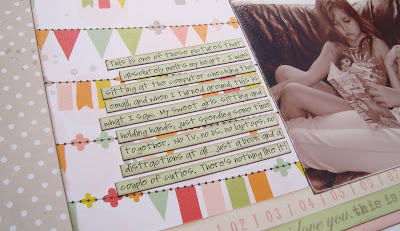 This is one of those pictures that
absolutely melts my heart. I was
sitting at the computer checking the
email and when I turned around this is
what I saw. my sweet girls sitting and
holding hands. just spending some time
together. No TV, no DS, no laptops, no
distractions at all...just a book and a
couple of cuties. There's nothing like it!
02 | 03 | 04 | 05
love you. this is